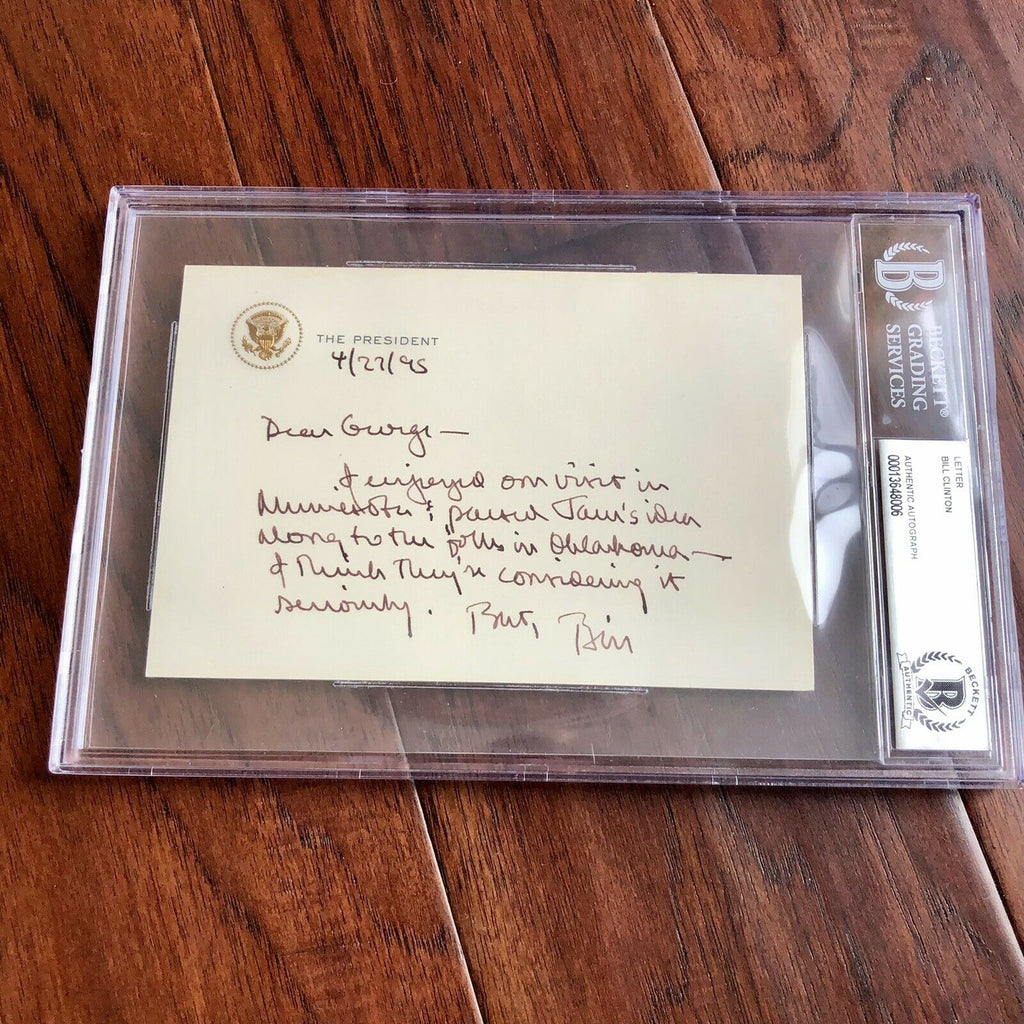 THE PRESIDENT
4/27/95
Dear George—
I enjoyed our visit in
Minnesota & passed Jam's idea
along to the folks in Oklahoma—
I think they're considering it
seriously. Best, Bill
B
BECKETT®
GRADING
SERVICES
LETTER
BILL CLINTON
AUTHENTIC AUTOGRAPH
00013648006
BECKETT
AUTHENTIC